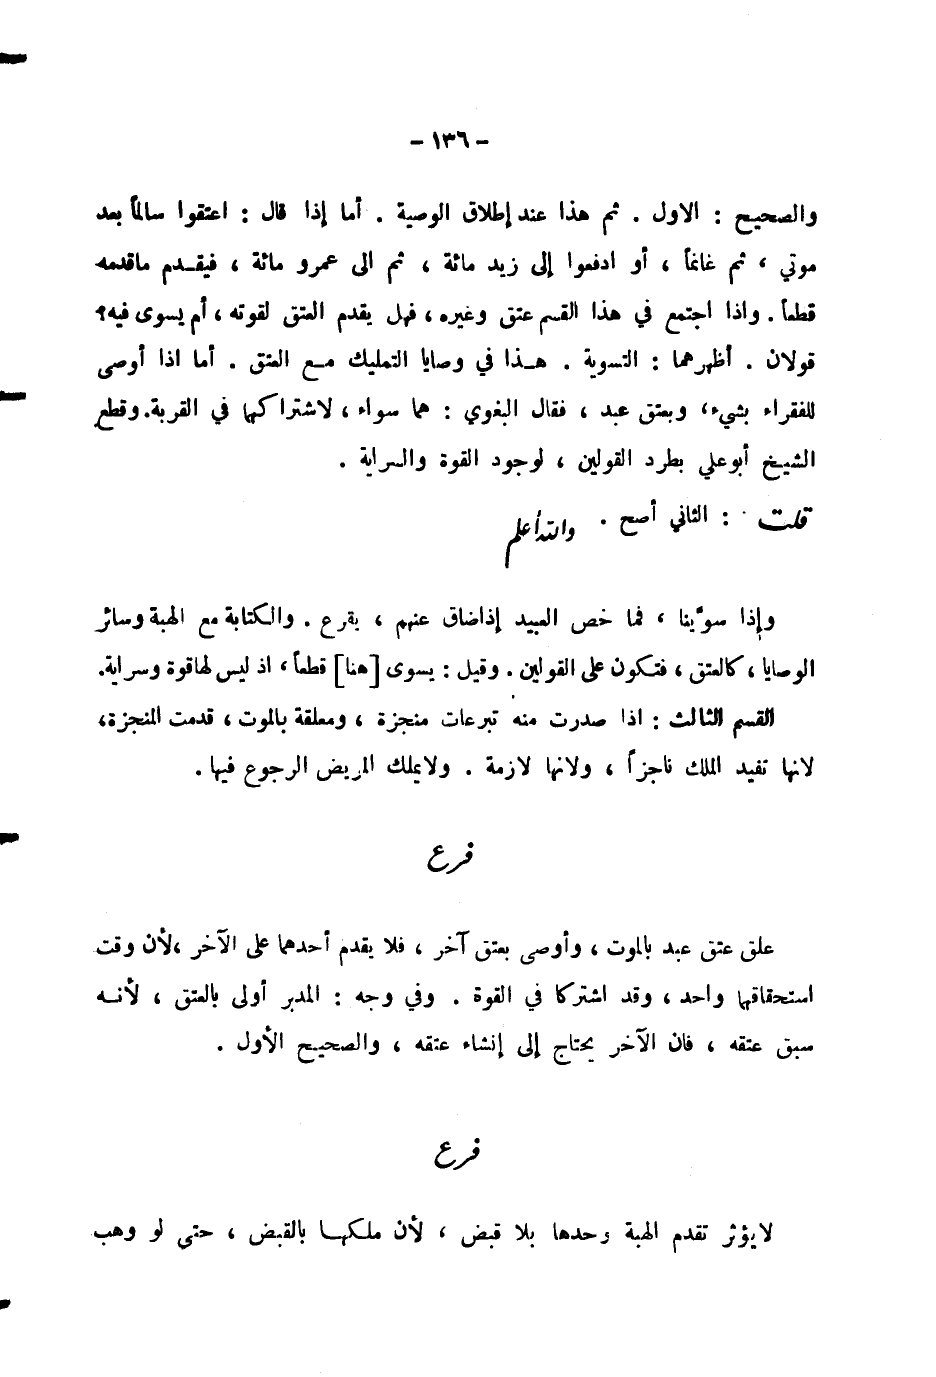 - ١٣٦ -
والصحيح : الاول . ثم هذا عند إطلاق الوصية . أما إذا قال : اعتقوا سالماً بعد
موتي ، ثم غانماً ، أو ادفعوا إلى زيد مائة ، ثم الى عمرو مائة ، فيقـدم ماقدمه
قطعاً . واذا اجتمع في هذا القسم عتق وغيره ، فهل يقدم العتق لقوته ، أم يسوى فيه؟
قولان . أظهرهما : التسوية . هـذا في وصايا التمليك مـع العتق . أما اذا أوصى
للفقراء بشيء، وبعتق عبد ، فقال البغوي : هما سواء ، لاشتراكهما في القربة. وقطع
الشيخ أبوعلي بطرد القولين ، لوجود القوة والسراية .
قلت : الثاني أصح . والله أعلم
وإذا سوّينا ، فما خص العبيد إذاضاق عنهم ، يقرع . والكتابة مع الهبة وسائر
الوصايا ، كالعتق ، فتكون على القولين . وقيل : يسوى [هنا] قطعاً ، اذ ليس لهاقوة وسراية.
القسم الثالث : اذا صدرت منه تبرعات منجزة ، ومعلقة بالموت ، قدمت المنجزة،
لانها تفيد الملك ناجزاً ، ولانها لازمة . ولايملك المريض الرجوع فيها .
فرع
علق عتق عبد بالموت ، وأوصى بعتق آخر ، فلا يقدم أحدهما على الآخر ،لأن وقت
استحقاقهما واحد ، وقد اشتركا في القوة . وفي وجه : المدبر أولى بالعتق ، لأنـه
سبق عتقه ، فان الآخر يحتاج إلى إنشاء عتقه ، والصحيح الأول .
فرع
لايؤثر تقدم الهبة وحدها بلا قبض ، لأن ملكهـا بالقبض ، حتى لو وهب